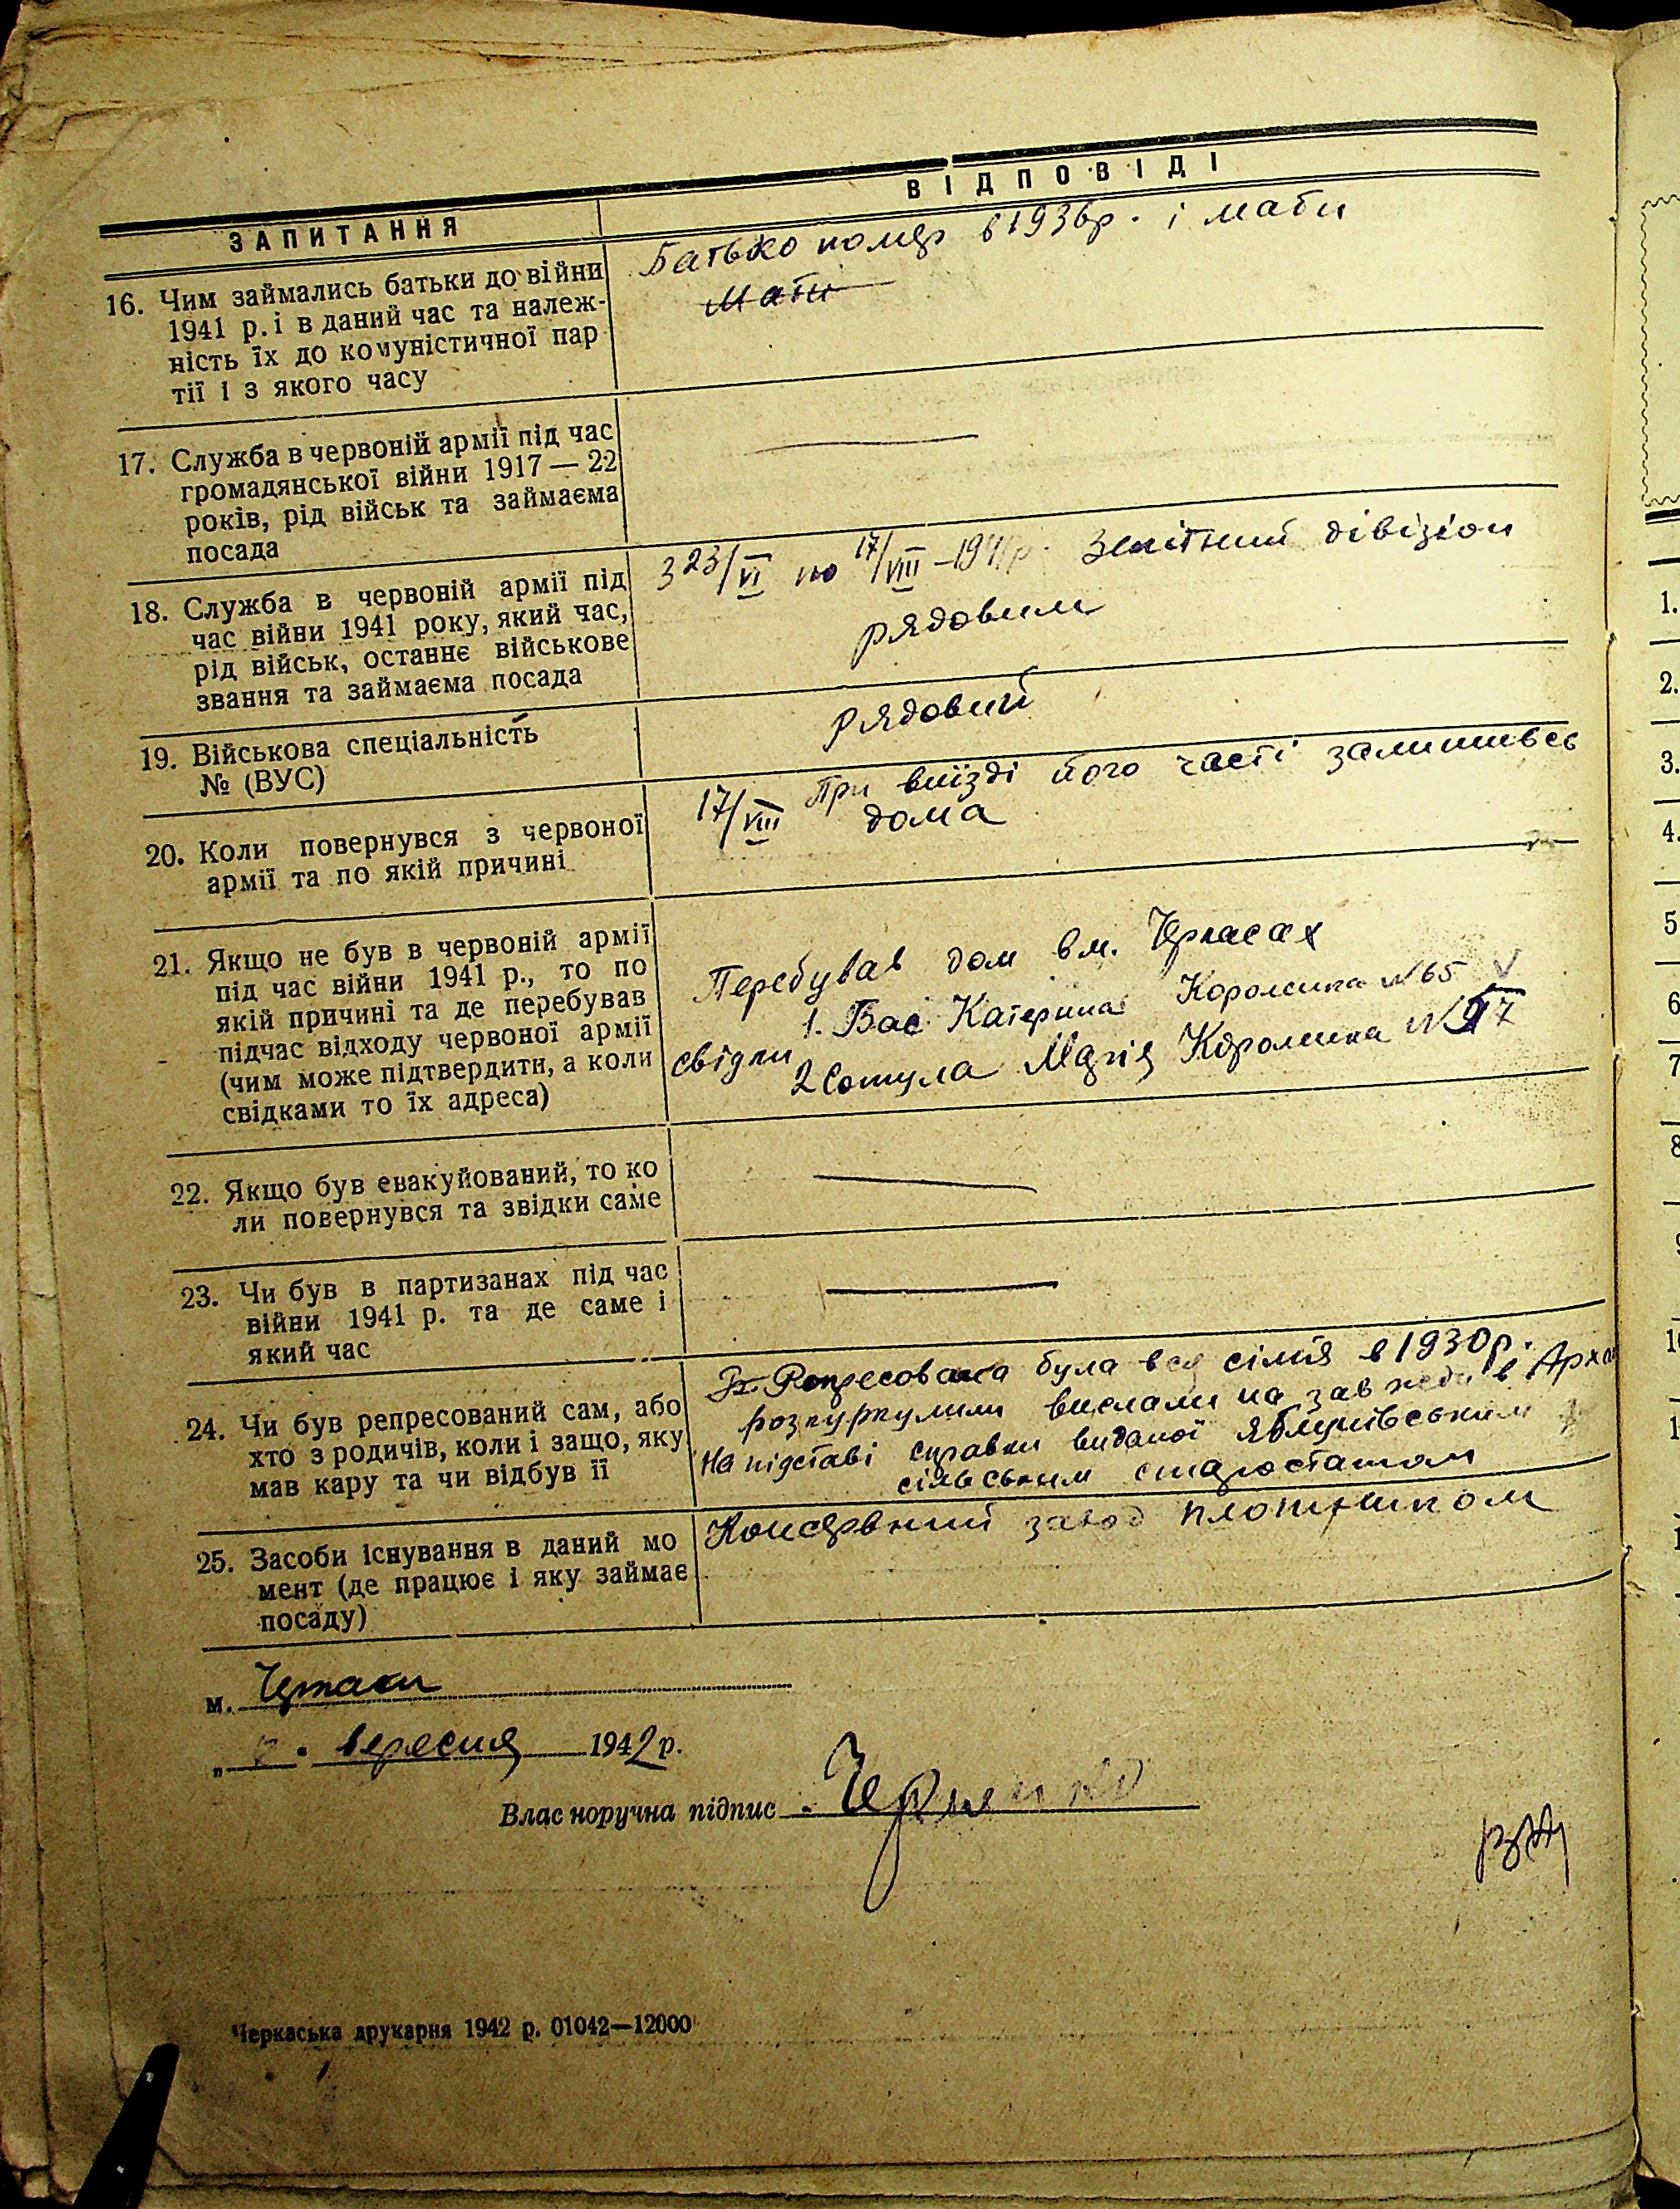 ЗАПИТАННЯ
ВІДПОВІДІ
16. Чим займались батьки до війни
1941 р. і в даний час та належ-
ність їх до комуністичної пар
тії і з якого часу
Батько помер в 1936р. і мати
мати
17. Служба в червоній армії під час
громадянської війни 1917 — 22
років, рід військ та займаєма
посада
18. Служба в червоній армії під
час війни 1941 року, який час,
рід військ, останнє військове
звання та займаєма посада
З 23/VI по 17/VIII – 1941р. Зенітний дівізіон
рядовим
19. Військова спеціальність
№ (ВУС)
рядовий
20. Коли повернувся з червоної
армії та по якій причині
17/VIII При виїзді його часті залишивсь
дома
21. Якщо не був в червоній армії
під час війни 1941 р., то по
якій причині та де перебував
підчас відходу червоної армії
(чим може підтвердити, а коли
свідками то їх адреса)
Перебував дом в м. Черкасах
1. Бас Катерина Короленка №65
свідки
2 Сотула Марія Короленка №
22. Якщо був евакуйований, то ко
ли повернувся та звідки саме
23. Чи був в партизанах під час
війни 1941 р. та де саме і
який час
24. Чи був репресований сам, або
хто з родичів, коли і защо, яку
мав кару та чи відбув її
Репресована була вся сімія в 1930р.
розкуркулили вислали на завжди в Арха
На підставі справки виданої Яблунівським
сільським старостатом
25. Засоби існування в даний мо
мент (де працює і яку займає
посаду)
Консервний завод плотником
м. Черкаси
„ вересня 1942 р.
Власноручна підпис
Черкаська друкарня 1942 р. 01042—12000
1.
2.
3.
4.
5
6
7
8